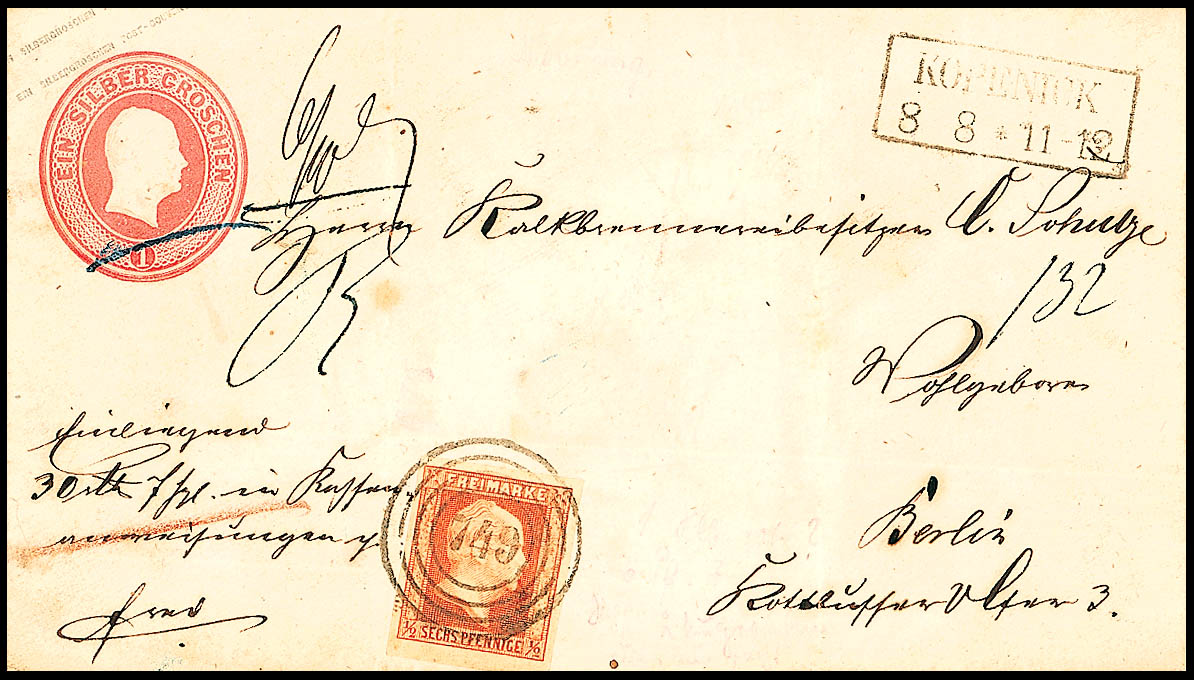 EIN SILBERGROSCHEN POST-COUVERT
EIN SILBERGROSCHEN POST-COUVERT
EIN SILBER GROSCHEN
1
KÖPENICK
8 8 * 11-12
Herrn Kalkbrennereibesitzer C. Schulze
132
Wohlgeboren
Einliegend
30 rth 7 sgl. in Kassen
anweisungen
frei
FREIMARKE
749
½ SECHS PFENNIGE ½
Berlin
Kottbusser Ufer 3.